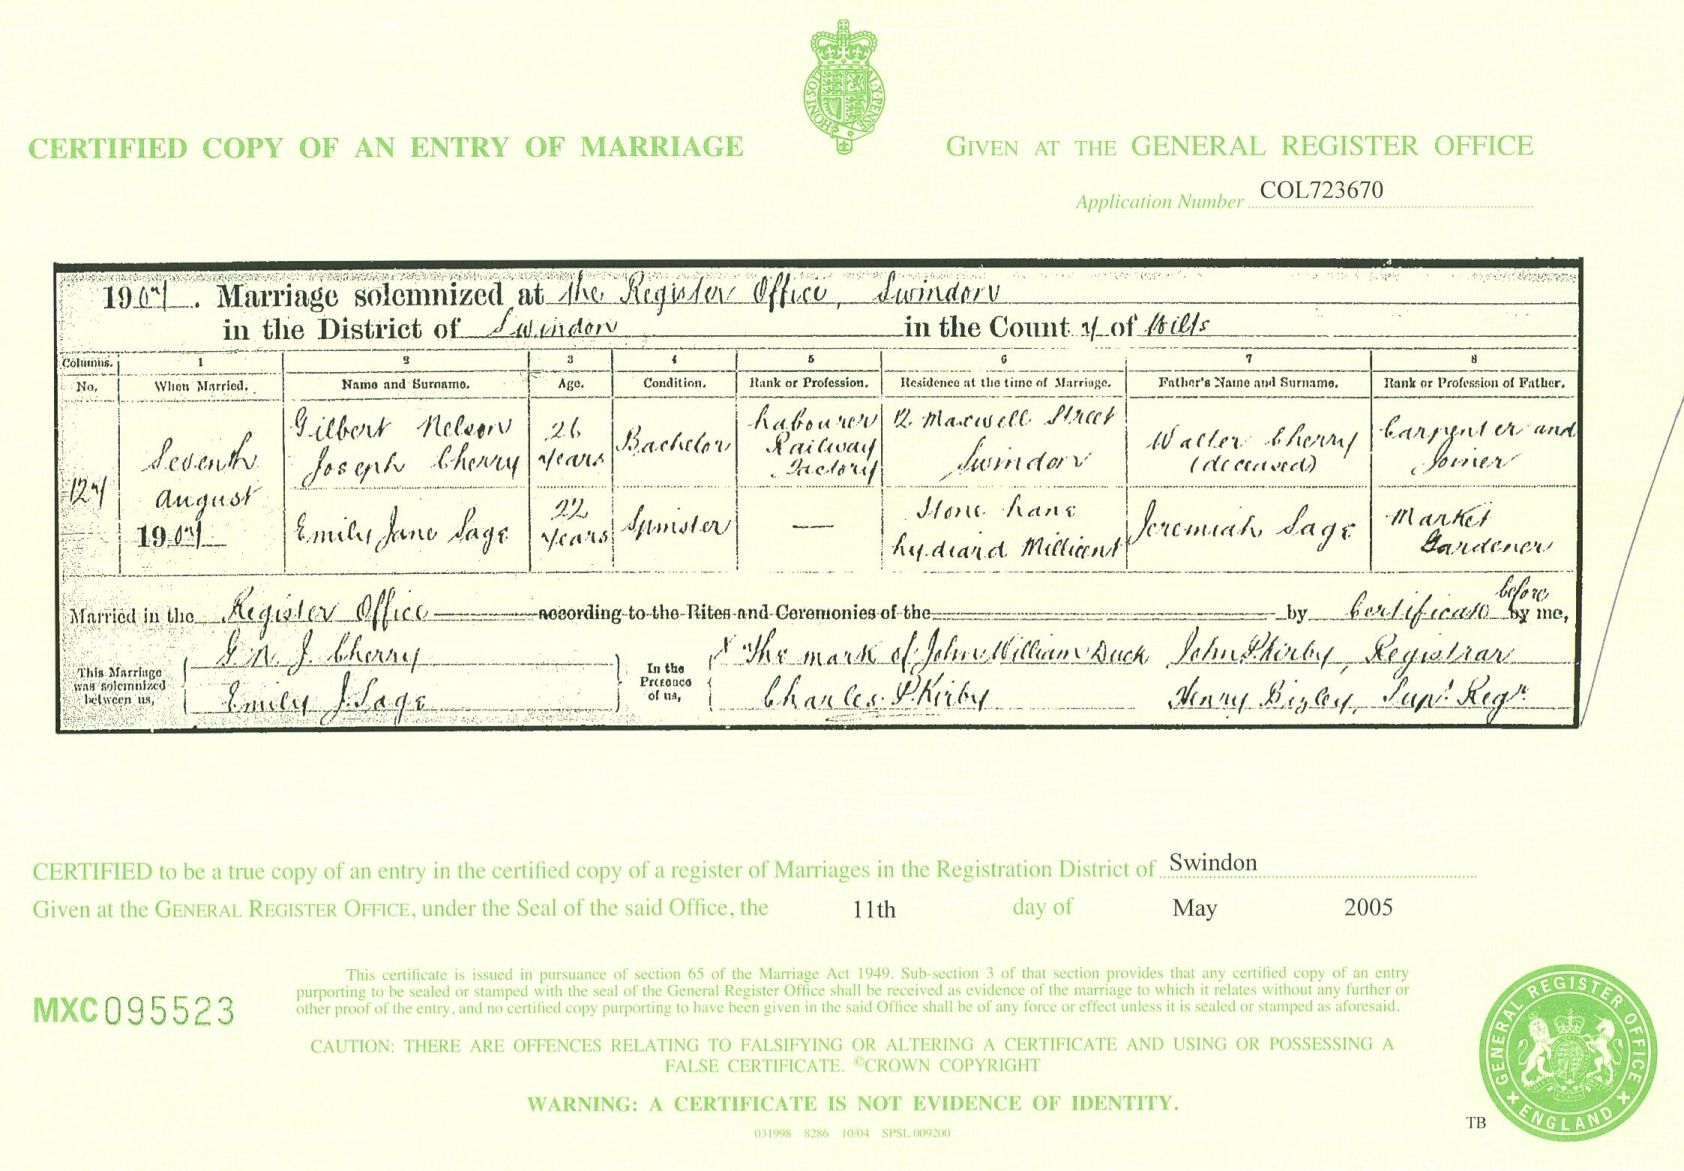 HONI SOIT QUI MAL Y PENSE
CERTIFIED COPY OF AN ENTRY OF MARRIAGE
GIVEN AT THE GENERAL REGISTER OFFICE
Application Number COL723670
1907. Marriage solemnized at the Register Office, Swindon
in the District of Swindon in the County of Wilts
Columns. 1 2 3 4 5 6 7 8
No. When Married. Name and Surname. Age. Condition. Rank or Profession. Residence at the time of Marriage. Father's Name and Surname. Rank or Profession of Father.
127 Seventh August 1907
Gilbert Nelson Joseph Cherry 26 years Bachelor Labourer Railway Factory 12 Maxwell Street Swindon Walter Cherry (deceased) Carpenter and Joiner
Emily Jane Sage 22 years Spinster — Stone Lane Lydiard Millicent Jeremiah Sage Market Gardener
Married in the Register Office according to the Rites and Ceremonies of the by Certificate before by me,
This Marriage was solemnized between us, G. N. J. Cherry
Emily J. Sage
In the Presence of us, X The mark of John William Duck
Charles P. Kirby
John P. Kirby, Registrar
Henry Bizley, Supt Regr
CERTIFIED to be a true copy of an entry in the certified copy of a register of Marriages in the Registration District of Swindon
Given at the GENERAL REGISTER OFFICE, under the Seal of the said Office, the 11th day of May 2005
MXC 095523
This certificate is issued in pursuance of section 65 of the Marriage Act 1949. Sub-section 3 of that section provides that any certified copy of an entry
purporting to be sealed or stamped with the seal of the General Register Office shall be received as evidence of the marriage to which it relates without any further or
other proof of the entry, and no certified copy purporting to have been given in the said Office shall be of any force or effect unless it is sealed or stamped as aforesaid.
CAUTION: THERE ARE OFFENCES RELATING TO FALSIFYING OR ALTERING A CERTIFICATE AND USING OR POSSESSING A
FALSE CERTIFICATE. ©CROWN COPYRIGHT
WARNING: A CERTIFICATE IS NOT EVIDENCE OF IDENTITY.
031998 8286 10/04 SPSL 009200
TB
GENERAL REGISTER OFFICE
ENGLAND